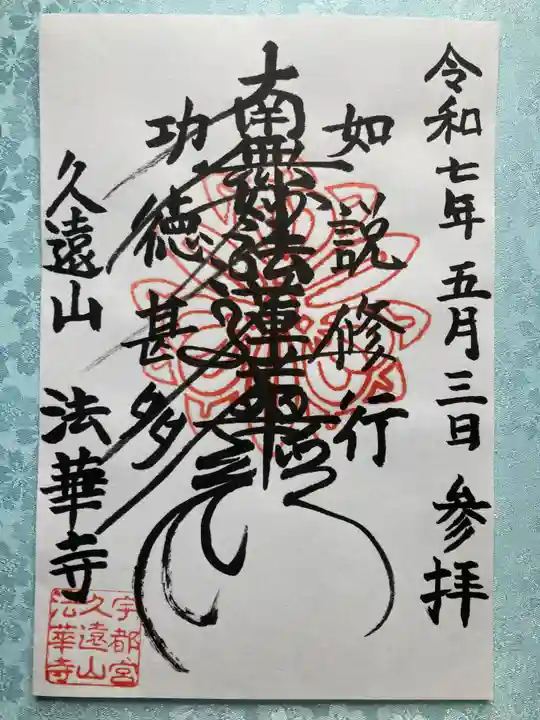 令和七年五月三日 参拝
如説修行
南無妙法蓮華経
功徳甚多
久遠山 法華寺
宇都宮
久遠山
法華寺